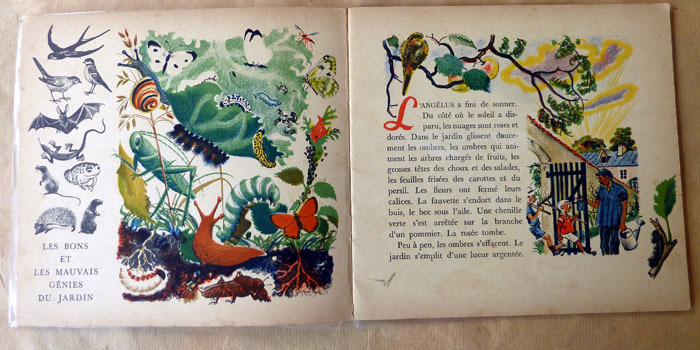 LES BONS
ET
LES MAUVAIS
GÉNIES
DU JARDIN
L'ANGÉLUS a fini de sonner.
Du côté où le soleil a dis-
paru, les nuages sont roses et
dorés. Dans le jardin glissent douce-
ment les ombres, les ombres qui ani-
ment les arbres chargés de fruits, les
grosses têtes des choux et des salades,
les feuilles frisées des carottes et du
persil. Les fleurs ont fermé leurs
calices. La fauvette s'endort dans le
buis, le bec sous l'aile. Une chenille
verte s'est arrêtée sur la branche
d'un pommier. La rosée tombe.
Peu à peu, les ombres s'effacent. Le
jardin s'emplit d'une lueur argentée.